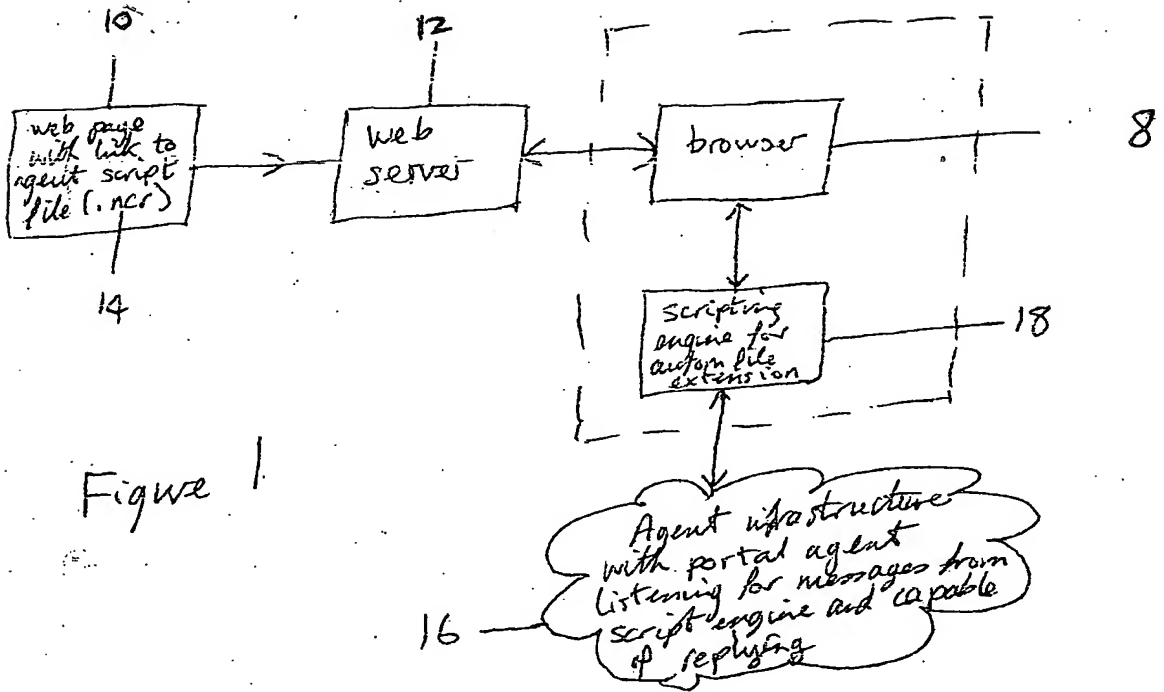 10
12
web page
with link to
agent script
file (.ncr)
14
web
server
browser
8
scripting
engine for
custom file
extension
18
Figure 1
Agent infrastructure
with portal agent
listening for messages from
script engine and capable
of replying
16